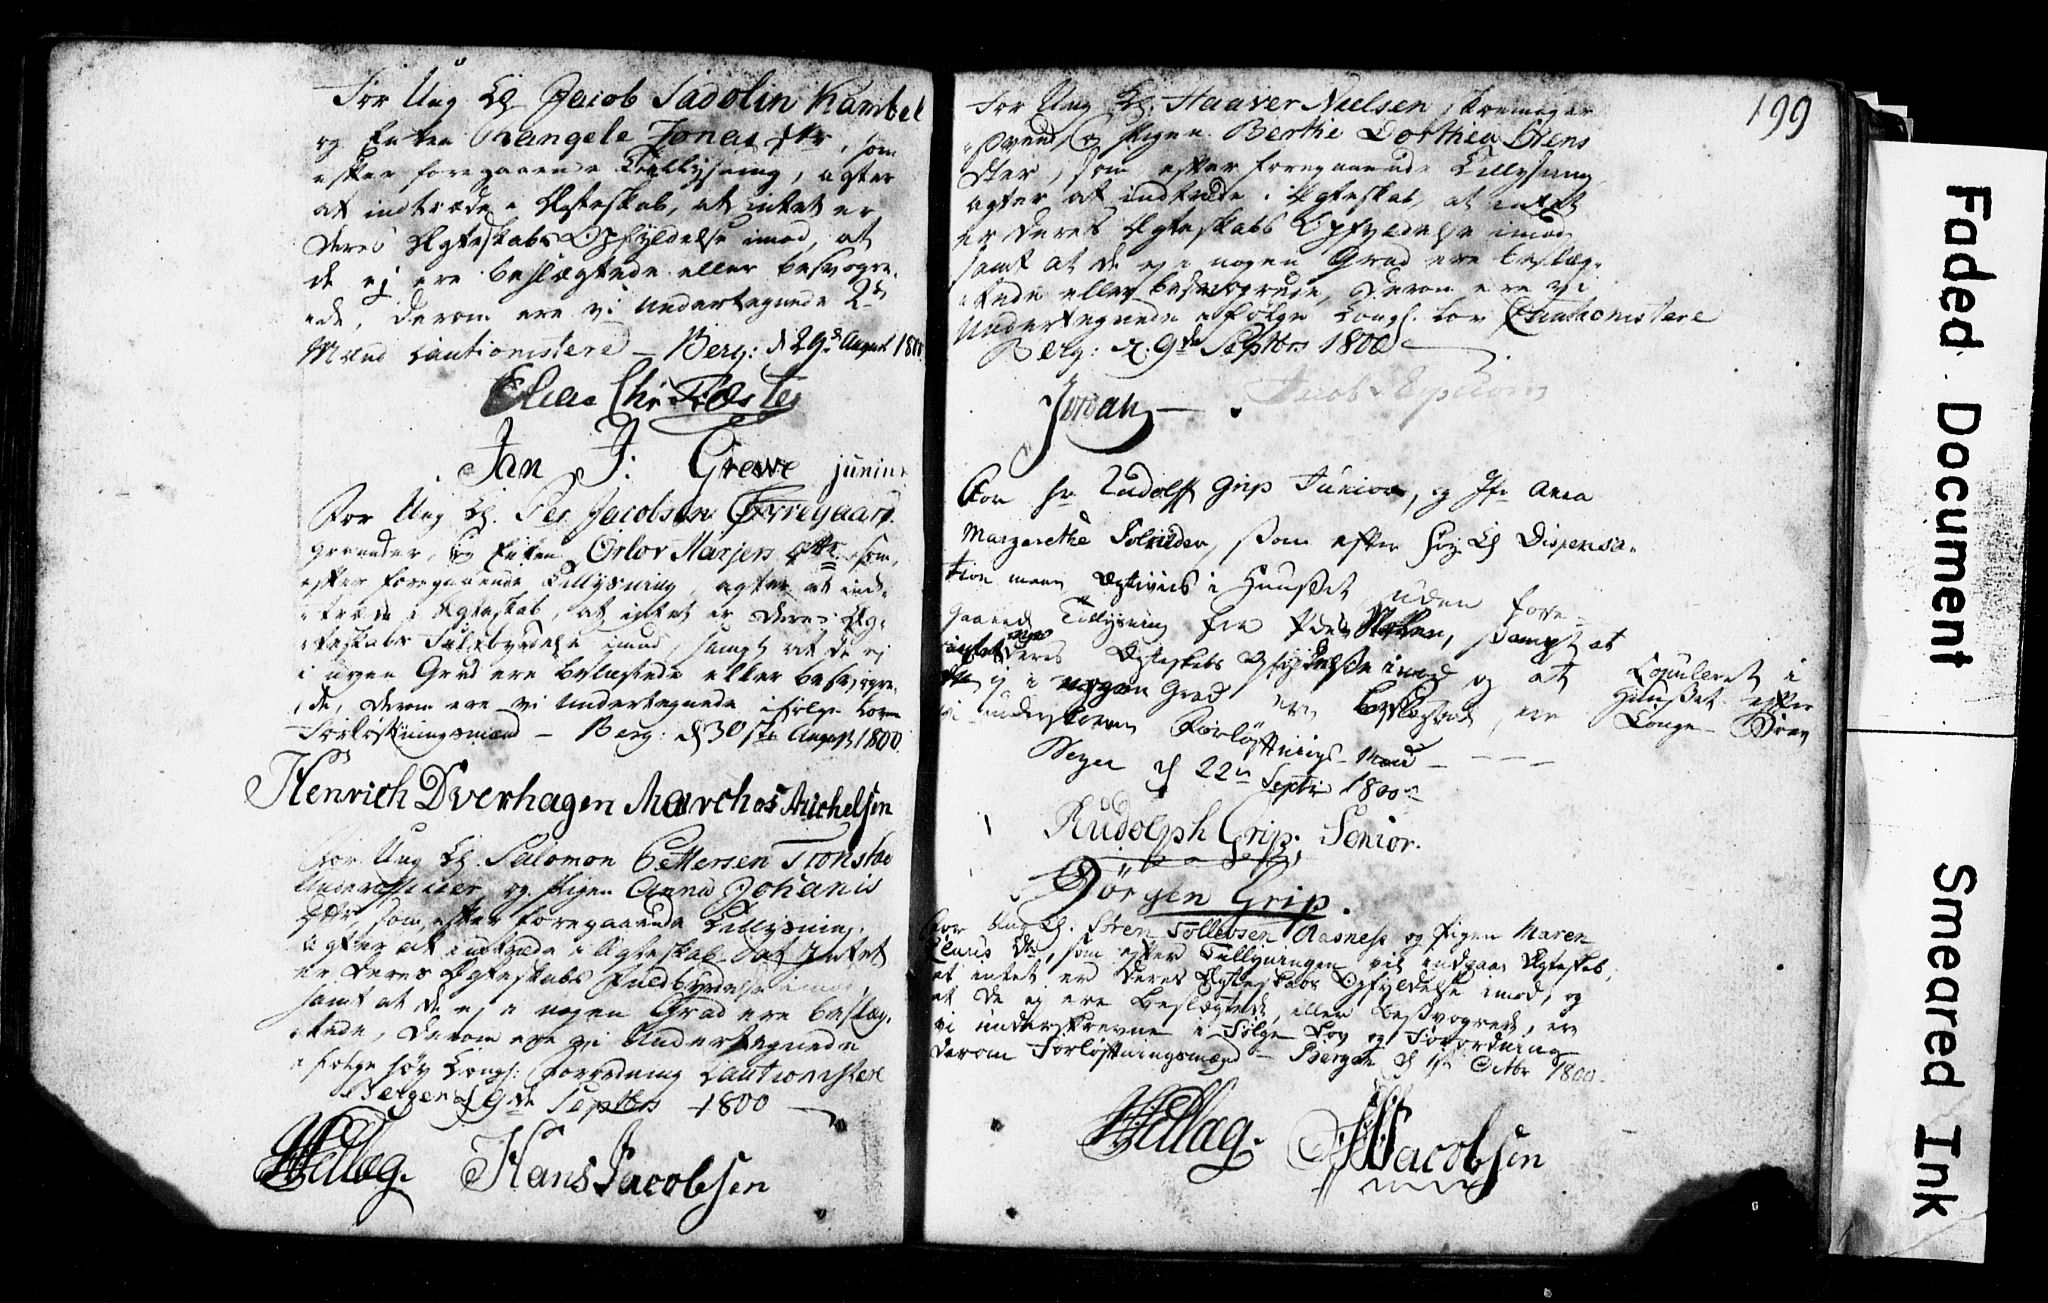 For Ung Kl Jacob Sadolin Kambel
og Enken Rangele Jonas dtr, som
efter foregaaende Tillysning, agter
at indtræde i Ægteskab, at intet er
deres Ægteskabs Opfyldelse imod, at
de ej ere beslægtede eller besvogre-
ede, derom ere vi undertegnede 2de
Mænd Cautionistere – Berg: d 29de August 1800.
Elias Chr
Jan J: Grewe junior
For Ung Kl. Per Jacobsen
og Enken Orlov Harjers dtr. som,
efter foregaaende Tillysning, agter at ind-
træde i Ægteskab, at intet er deres Æg-
teskabs Fuldbyrdelse imod, samt at de ej
i nogen Grad ere beslægtede eller besvogre-
de, derom ere vi undertegnede ifølge Loven
Forløftningsmænd – Berg: d 30ste August 1800.
Henrich Dverhagen Marchos Michelsen
For Ung Kl. Salomon Pettersen Tronstad
Underofficeer, og Pigen Anna Johanis
dttr som, efter foregaaende Tillysning,
agter at indtræde i Ægteskab at Intet
er deres Ægteskabs Fuldbyrdelse imod,
samt at de ej i nogen Grad ere beslæg-
tede, derom ere vi Undertegnede
i følge høy Kongl: Forordning Cautionistere
Bergen d 9de Septbr 1800
Wellag. Hans Jacobsen
199
For Ung Kl. Haaver Nielsen,
svend, og Pigen Berthe Dorthea Stens
dter, som efter foregaaende Tillysning
agter at indtræde i Ægteskab, at intet
er deres Ægteskabs Opfyldelse imod
samt at de ej i nogen Grad ere beslæg-
tede eller besvogrede, derom ere vi
Undertegnede ifølge Kongl. Lov Cautionistere
Berg: d. 9de Septbr 1800
Jordan Jacob
For Hr Rudolff Grip Junior, og Jfr Ana
Margarethe, som efter høy Kl Dispensa-
tion maae Ægtevies i Huuset uden fore-
gaaende Tillysning fra Prædikestolen, sampt at
intet deres Ægteskabs Opfyldelse imod og at
de ej i nogen Grad ere beslægtet, ere
vi underskreven Forløftnings-Mænd
Copuleret i
Huuset efter
Konge-Brev
Bergen d 22n Septr 1800
Rudolph Grip, Senior.
Jörgen Grip.
For Ung Kl. Sören Tollevsen Aasness og Pigen Maren
Clauis Dtr, som efter Tillysningen vil indgaae Ægteskab,
at intet er deres Ægteskabs Opfyldelse imod, og
at de ej ere beslægtede, eller besvogrede, ere
vi underskrevne i Følge Lov og Forordning
derom Forløftningsmænd – Bergen d 1ste Octbr 1800.
Wellag. Jacobsen
Faded Document
Smeared Ink